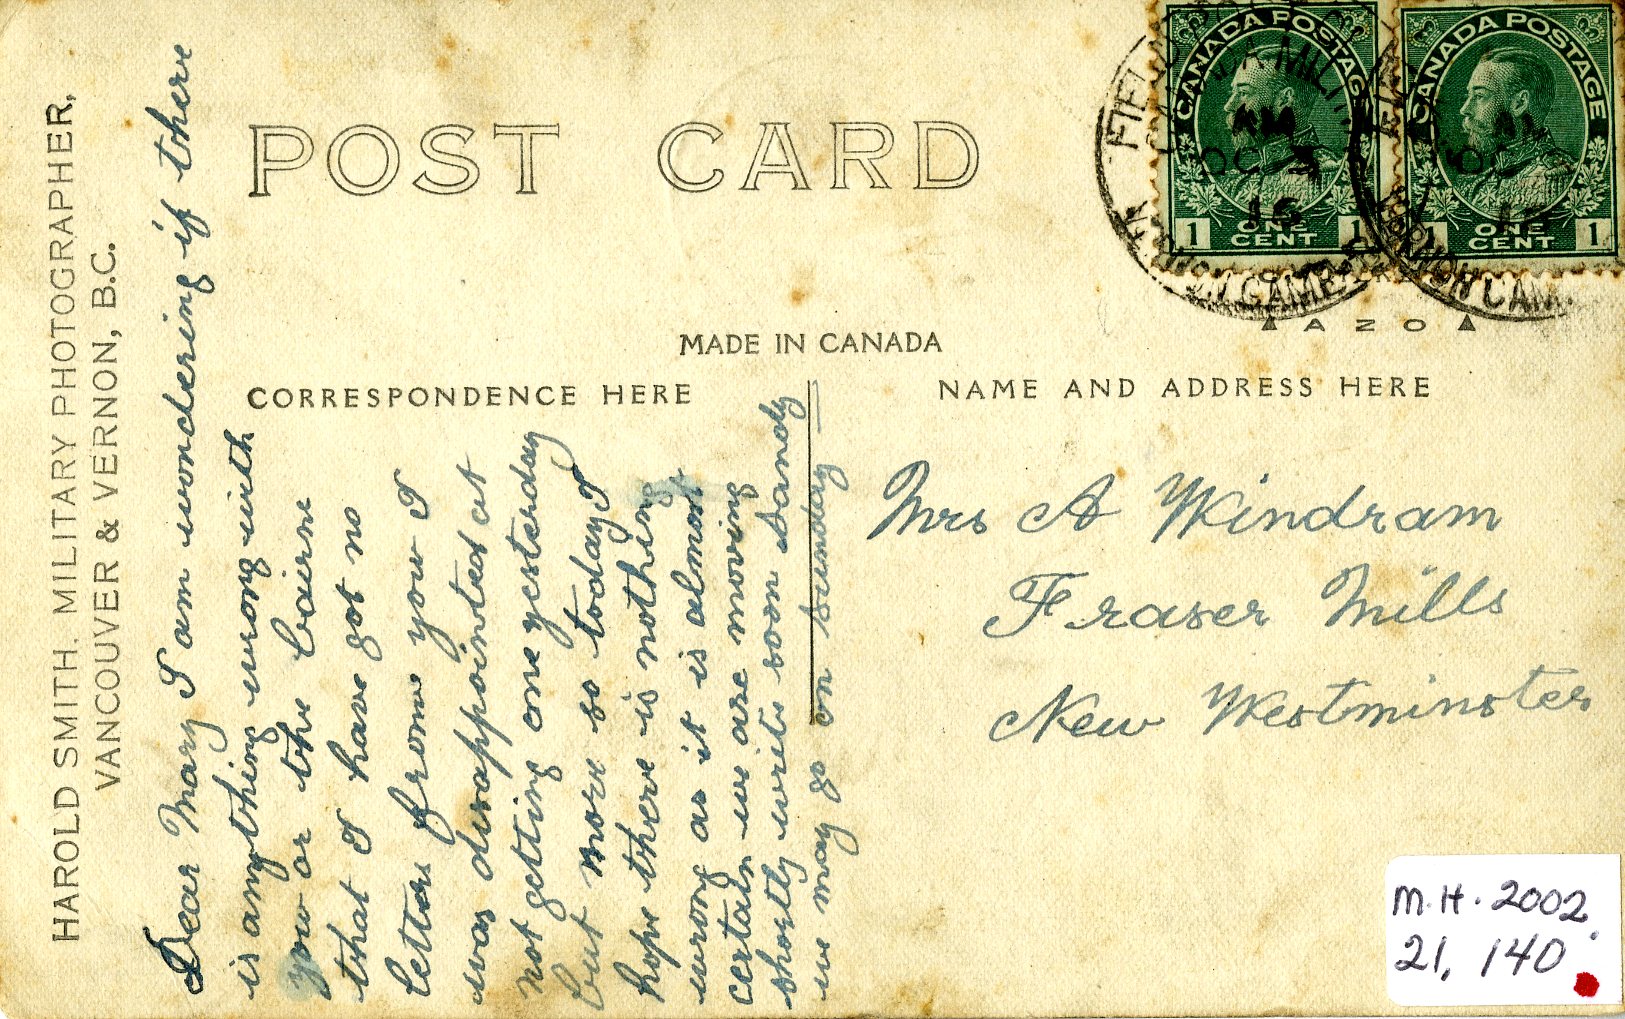 HAROLD SMITH. MILITARY PHOTOGRAPHER,
VANCOUVER & VERNON, B.C.
POST CARD
MADE IN CANADA
CORRESPONDENCE HERE
NAME AND ADDRESS HERE
Dear Mary I am wondering if there
is anything wrong with
you or the bairns
that I have got no
letters from you I
was disappointed at
not getting one yesterday
but more so today I
hope there is nothing
wrong as it is almost
certain we are moving
shortly write soon Sandy
we may go on Sunday
Mrs A Windram
Fraser Mills
New Westminster
CANADA POSTAGE
1 ONE CENT 1
CANADA POSTAGE
1 ONE CENT 1
FIELD
AM
OC
16
AM
OC
CAM
AZO
M.H. 2002.
21. 140